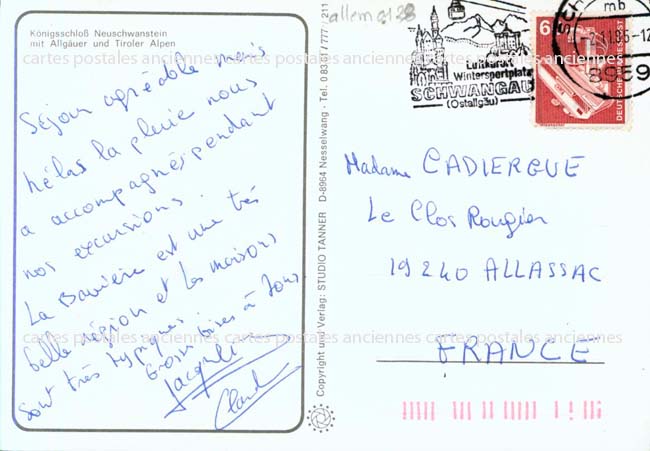 Königsschloß Neuschwanstein
mit Allgäuer und Tiroler Alpen
Séjour agréable mais
hélas la pluie nous
a accompagnés pendant
nos excursions.
La Bavière est une très
belle région et les maisons
sont très typiques
Gross bises à Tous
Jacqueli
Claud
Copyright und Verlag: STUDIO TANNER D-8964 Nesselwang · Tel. 0 83 61 / 777 211
allem 2138
Luftkurort
Wintersportplatz
SCHWANGAU
(Ostallgäu)
mb
11.85-12
8959
6
DEUTSCHE BUNDESPOST
Madame CADIERGUE
Le Clos Rougier
19240 ALLASSAC
FRANCE
cartes postales anciennes cartes postales anciennes cartes postales anciennes
cartes postales anciennes cartes postales anciennes cartes postales anciennes